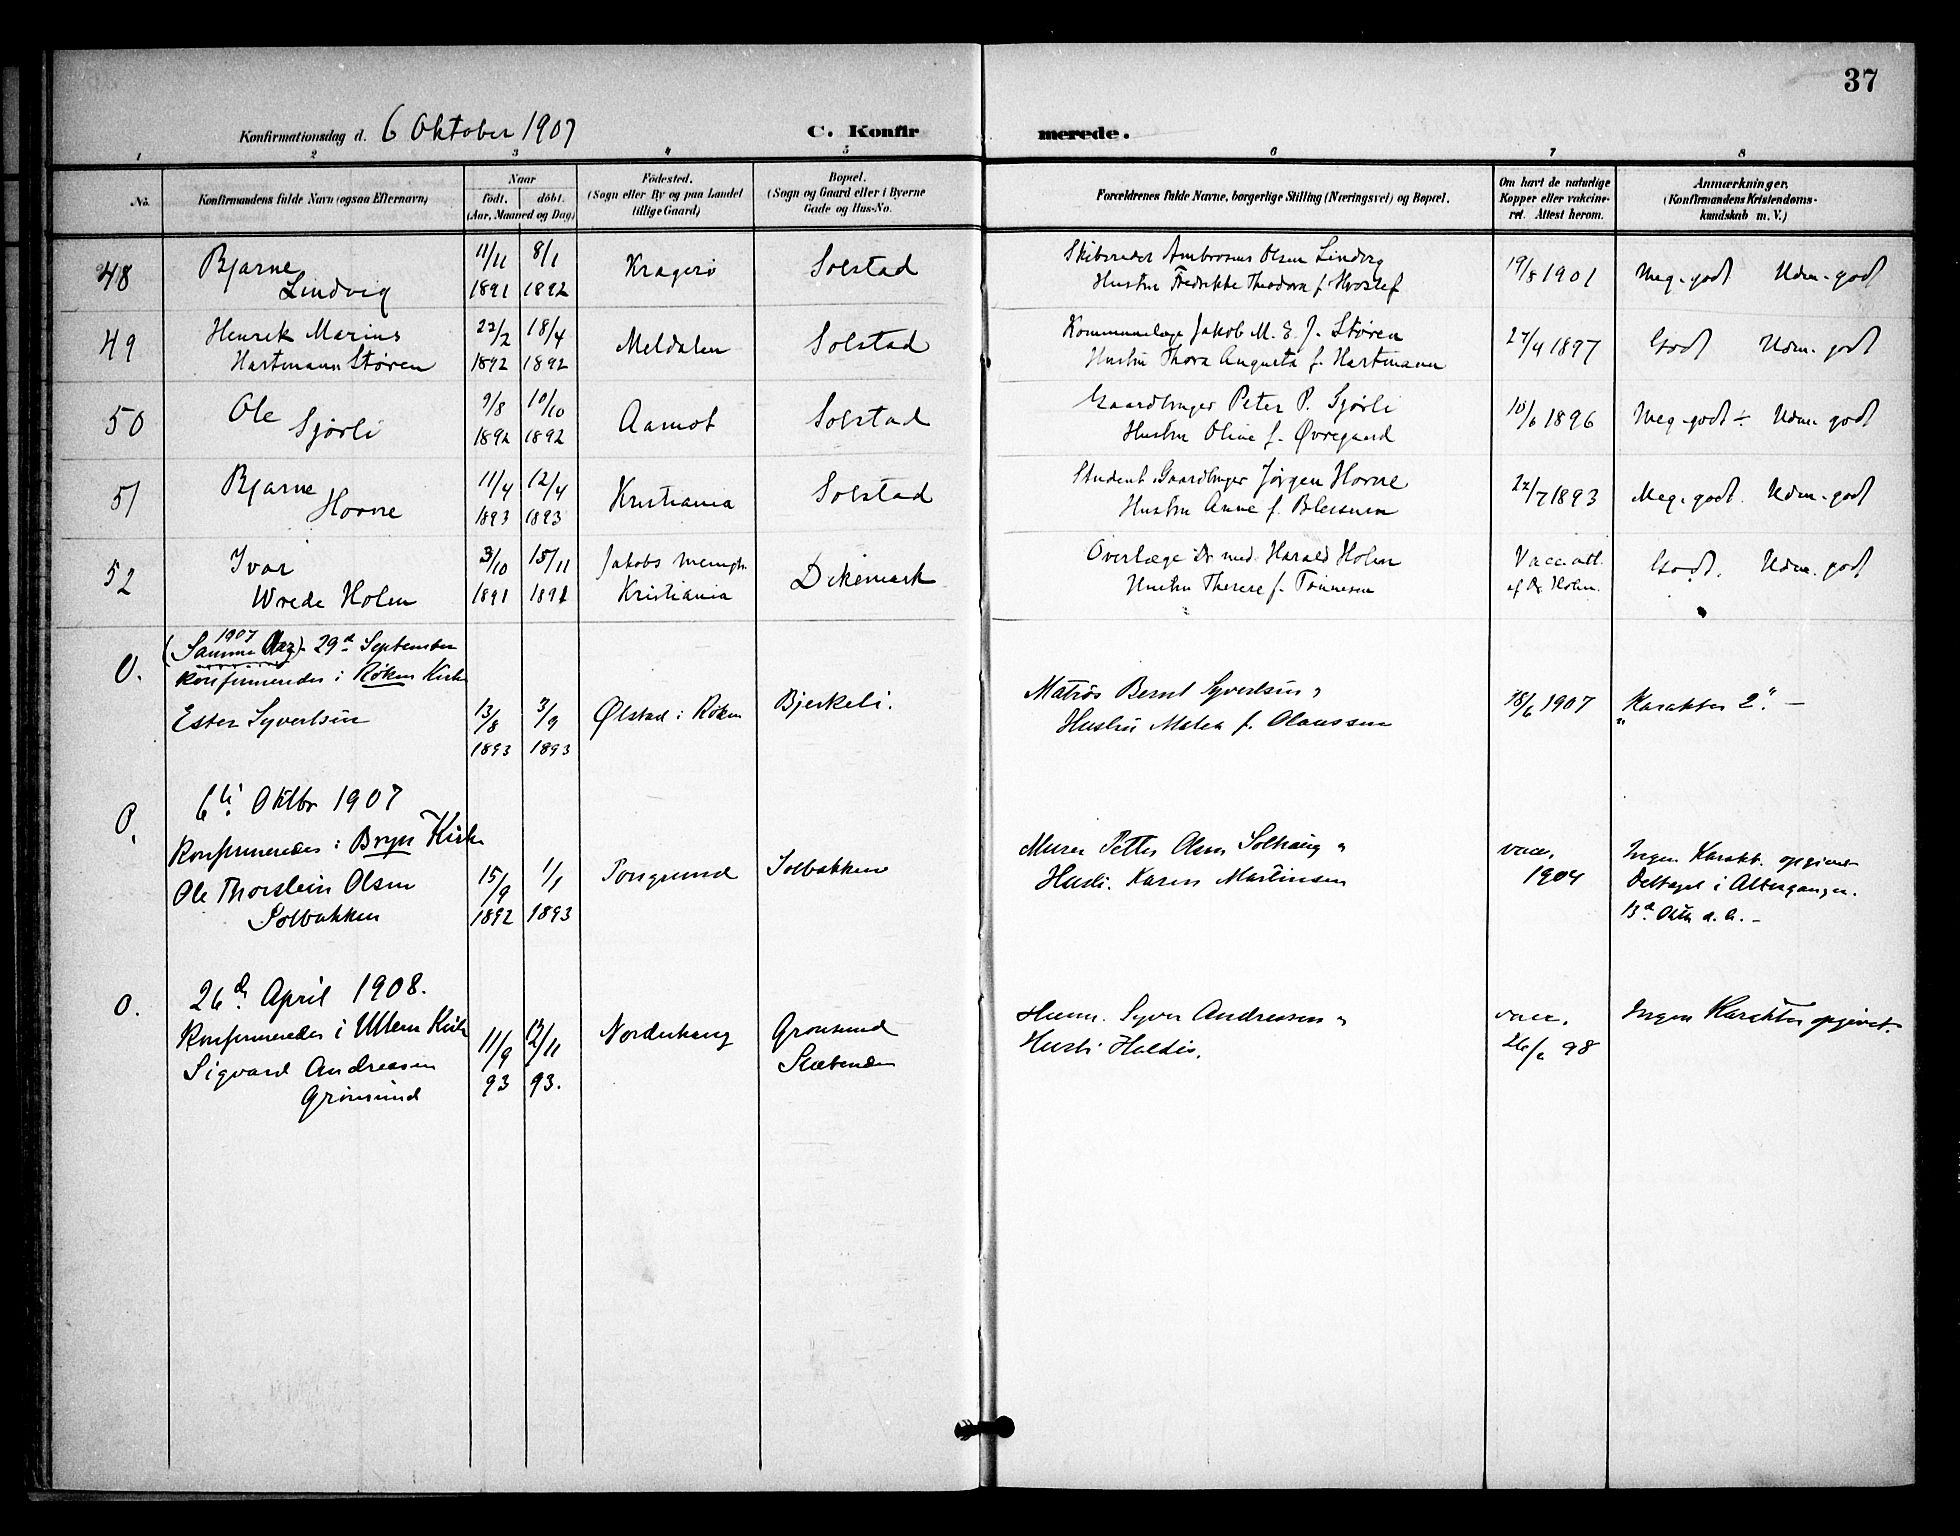 37
Konfirmationsdag d. 6 Oktober 1907 C. Konfirmerede.
1 2 3 4 5 6 7 8
No. Konfirmandens fulde Navn (ogsaa Efternavn) Naar født. døbt. (Aar, Maaned og Dag) Fødested. (Sogn eller By og paa Landet tillige Gaard) Bopæl. (Sogn og Gaard eller i Byerne Gade og Hus-No. Forældrenes fulde Navne, borgerlige Stilling (Næringsvei) og Bopæl. Om havt de naturlige Kopper eller vakcineret. Attest herom. Anmærkninger. (Konfirmandens Kristendomskundskab m. V.)
48 Bjarne 11/11 8/1 Kragerø Solstad Skibsreder Ambrosius Olsen Lindvig 19/8 1901 Meg. godt Udm. godt
Lindvig 1891 1892 Hustru Fredrikke Theodora f.
49 Henrik Marius 22/2 18/4 Meldalen Solstad Kommunelæge Jakob M. E. J. Støren 27/4 1897 Godt Udm. godt
Hartmann Støren 1892 1892 Hustru Thora Augusta f. Hartmann
50 Ole 9/8 10/10 Aamot Solstad Gaardbruger Peter P. Sjørli 10/6 1896 Meg. godt ÷ Udm. godt
Sjørli 1892 1892 Hustru Oline f. Øvregaard
51 Bjarne 11/4 12/4 Kristiania Solstad Student, Gaardbruger Jørgen Horne 22/7 1893 Meg. godt. Udm. godt
Horne 1893 1893 Hustru Anne f.
52 Ivar 3/10 15/11 Jakobs menigh. Dikemark Overlæge Dr med. Harald Holm Vacc. att. Godt. Udm. godt
Wrede Holm 1891 1891 Kristiania Hustru Therese f. Tønnesen af Dr Holm.
O. (Samme Aar) 1907 29d September
konfirmeredes i Røken Kirke
Ester Syvertsen 13/8 1893 3/9 1893 Ølstad i Røken Bjerkeli. Matros Bernt Syvertsen & 18/6 1907 "Karakter 2." —
Hustru Matea f. Olaussen
O. 6ti Oktbr 1907
Konfirmeredes i Bryn Kirke
Ole Thorstein Olsen 15/9 1892 1/1 1893 Porsgrund Solbakken Murer Petter Olsen Solhaug & vacc. 1904 Ingen Karakt. opgivet
Solbakken Hustr. Karen Martinsen Deltaget i Altergangen.
13d Oktb d. A. —
O. 26de April 1908.
Konfirmeredes i Ullern Kirke
Sigvard Andreasen 11/9 93 12/11 93. Norderhaug Grønsund Husm. Syver Andreasen & vacc. Ingen Karakter opgivet.
Grønsund Slæbende Hustr. Haldis. 98